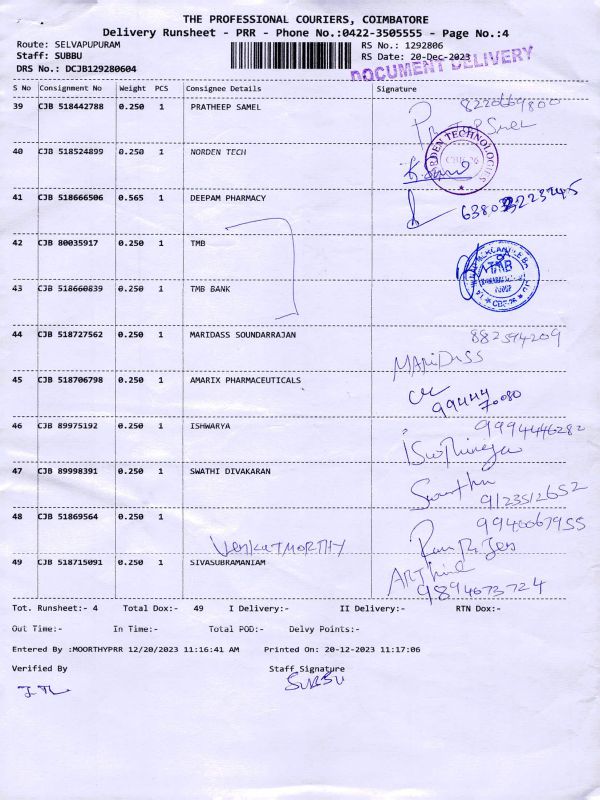 THE PROFESSIONAL COURIERS, COIMBATORE
Delivery Runsheet - PRR - Phone No.:0422-3505555 - Page No.:4
Route: SELVAPUPURAM RS No.: 1292806
Staff: SUBBU RS Date: 20-Dec-2023
DRS No.: DCJB129280604 DOCUMENT DELIVERY
S No Consignment No Weight PCS Consignee Details Signature
39 CJB 518442788 0.250 1 PRATHEEP SAMEL
40 CJB 518524899 0.250 1 NORDEN TECH
41 CJB 518666506 0.565 1 DEEPAM PHARMACY
42 CJB 80035917 0.250 1 TMB
TMB
43 CJB 518660839 0.250 1 TMB BANK
44 CJB 518727562 0.250 1 MARIDASS SOUNDARRAJAN 882594209
MARiDASS
45 CJB 518706798 0.250 1 AMARIX PHARMACEUTICALS
99444
70080
46 CJB 89975192 0.250 1 ISHWARYA 9994446282
47 CJB 89998391 0.250 1 SWATHI DIVAKARAN
Swathi 9123512652
48 CJB 51869564 0.250 1 9940067955
VenkATMORTHY
49 CJB 518715091 0.250 1 SIVASUBRAMANIAM
9894673724
Tot. Runsheet:- 4 Total Dox:- 49 I Delivery:- II Delivery:- RTN Dox:-
Out Time:- In Time:- Total POD:- Delvy Points:-
Entered By :MOORTHYPRR 12/20/2023 11:16:41 AM Printed On: 20-12-2023 11:17:06
Verified By Staff Signature
SUBBU